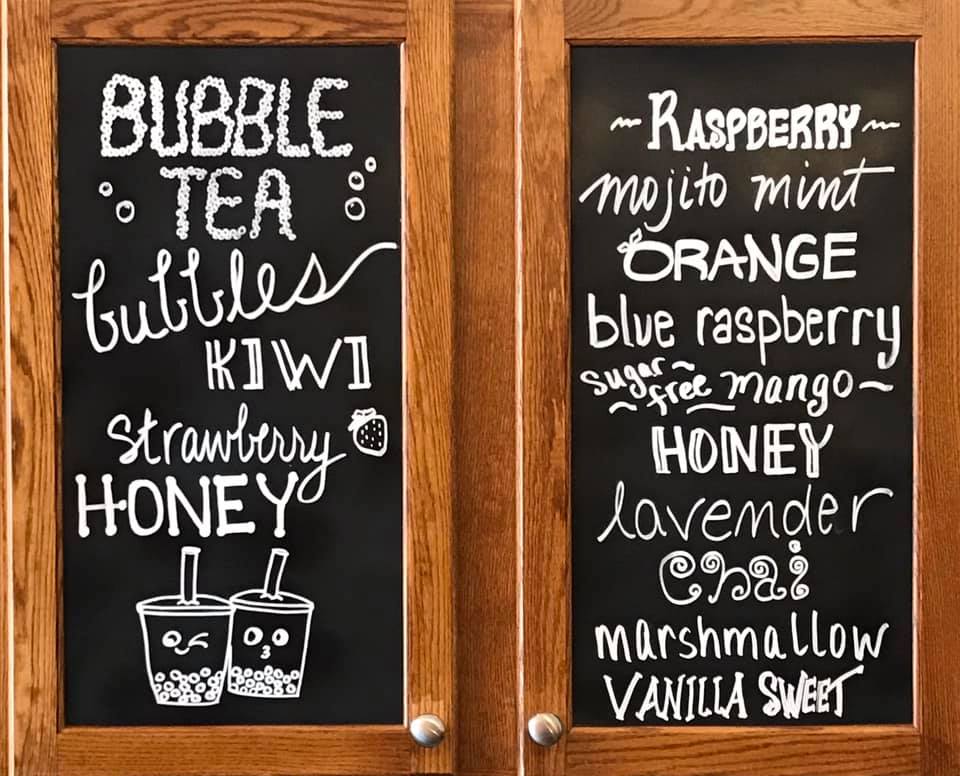 BUBBLE
TEA
bubbles
KIWI
strawberry
HONEY
~ RASPBERRY ~
mojito mint
ORANGE
blue raspberry
sugar free mango ~
HONEY
lavender
chai
marshmallow
VANILLA SWEET